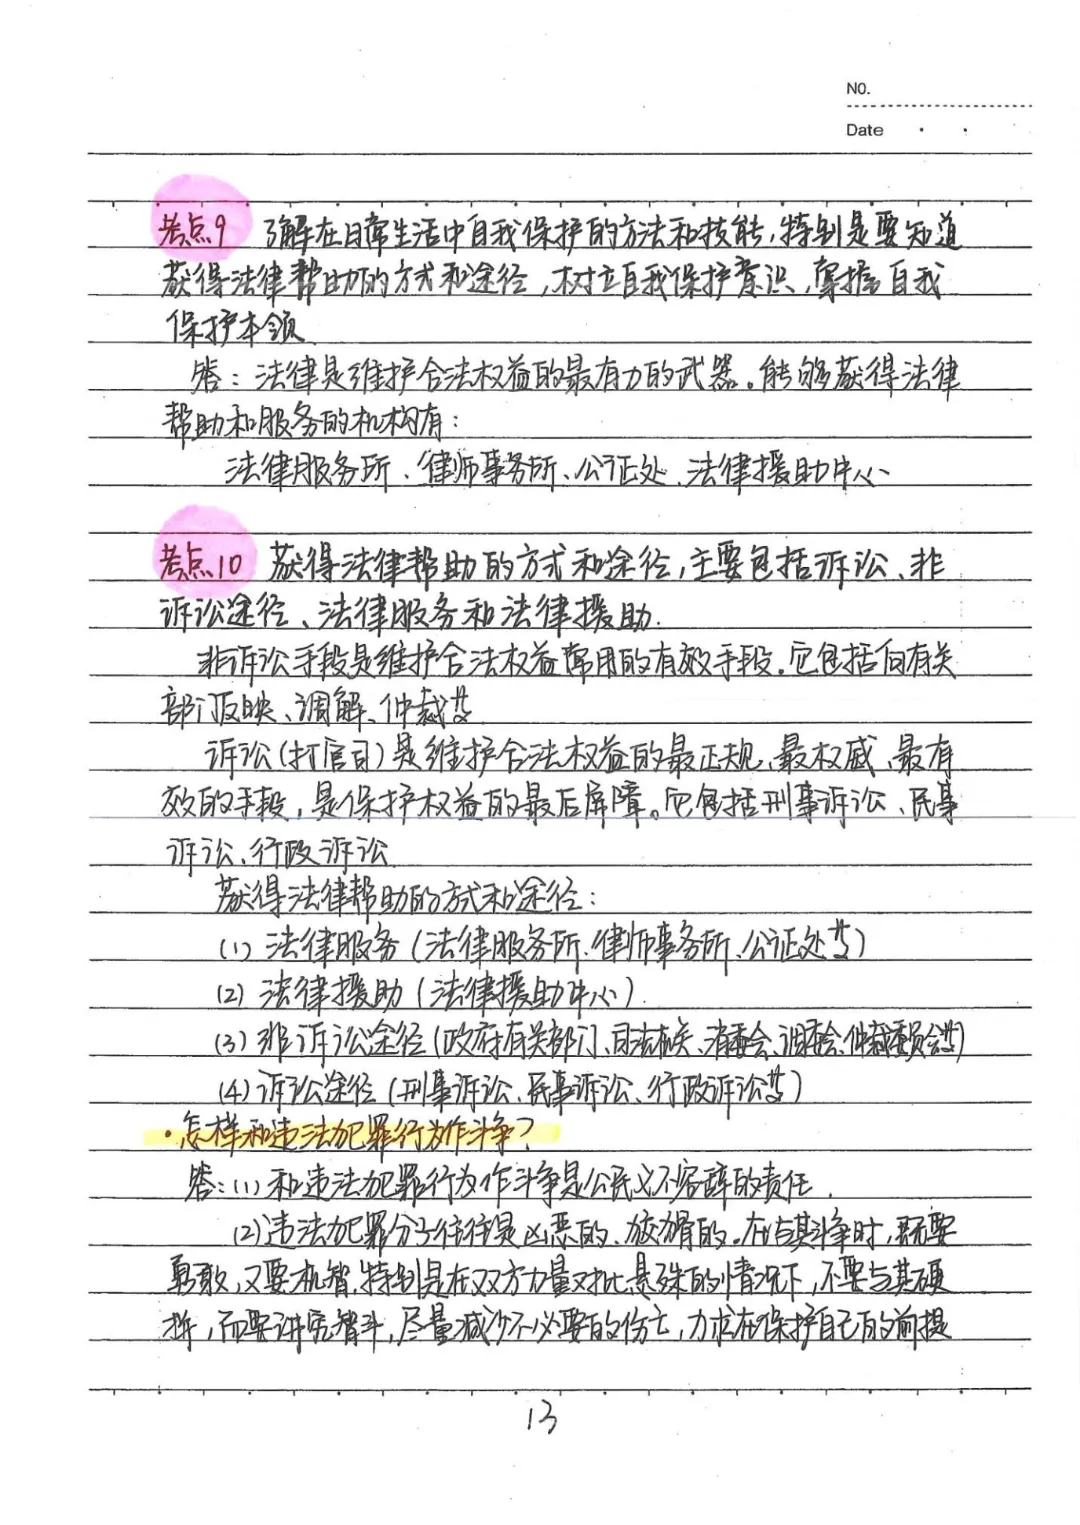 NO.
Date
考点9 了解在日常生活中自我保护的方法和技能，特别是要知道
获得法律帮助的方式和途径，树立自我保护意识，掌握自我
保护本领
答：法律是维护合法权益的最有力的武器。能够获得法律
帮助和服务的机构有：
法律服务所、律师事务所、公证处、法律援助中心
考点10 获得法律帮助的方式和途径，主要包括诉讼、非
诉讼途径、法律服务和法律援助.
非诉讼手段是维护合法权益常用的有效手段。它包括向有关
部门反映、调解、仲裁等
诉讼(打官司)是维护合法权益的最正规、最权威、最有
效的手段，是保护权益的最后屏障。它包括刑事诉讼、民事
诉讼、行政诉讼
获得法律帮助的方式和途径：
(1) 法律服务(法律服务所、律师事务所、公证处等)
(2) 法律援助(法律援助中心).
(3) 非诉讼途径(政府有关部门、司法机关、消委会、调委会、仲裁委员会等)
(4) 诉讼途径(刑事诉讼、民事诉讼、行政诉讼等)
·怎样和违法犯罪行为作斗争?
答：(1) 和违法犯罪行为作斗争是公民义不容辞的责任.
(2)违法犯罪分子往往是凶恶的、狡猾的。在与其斗争时，既要
勇敢，又要机智，特别是在双方力量对比悬殊的情况下，不要与其硬
拼，而要讲究智斗，尽量减少不必要的伤亡，力求在保护自己的前提
13